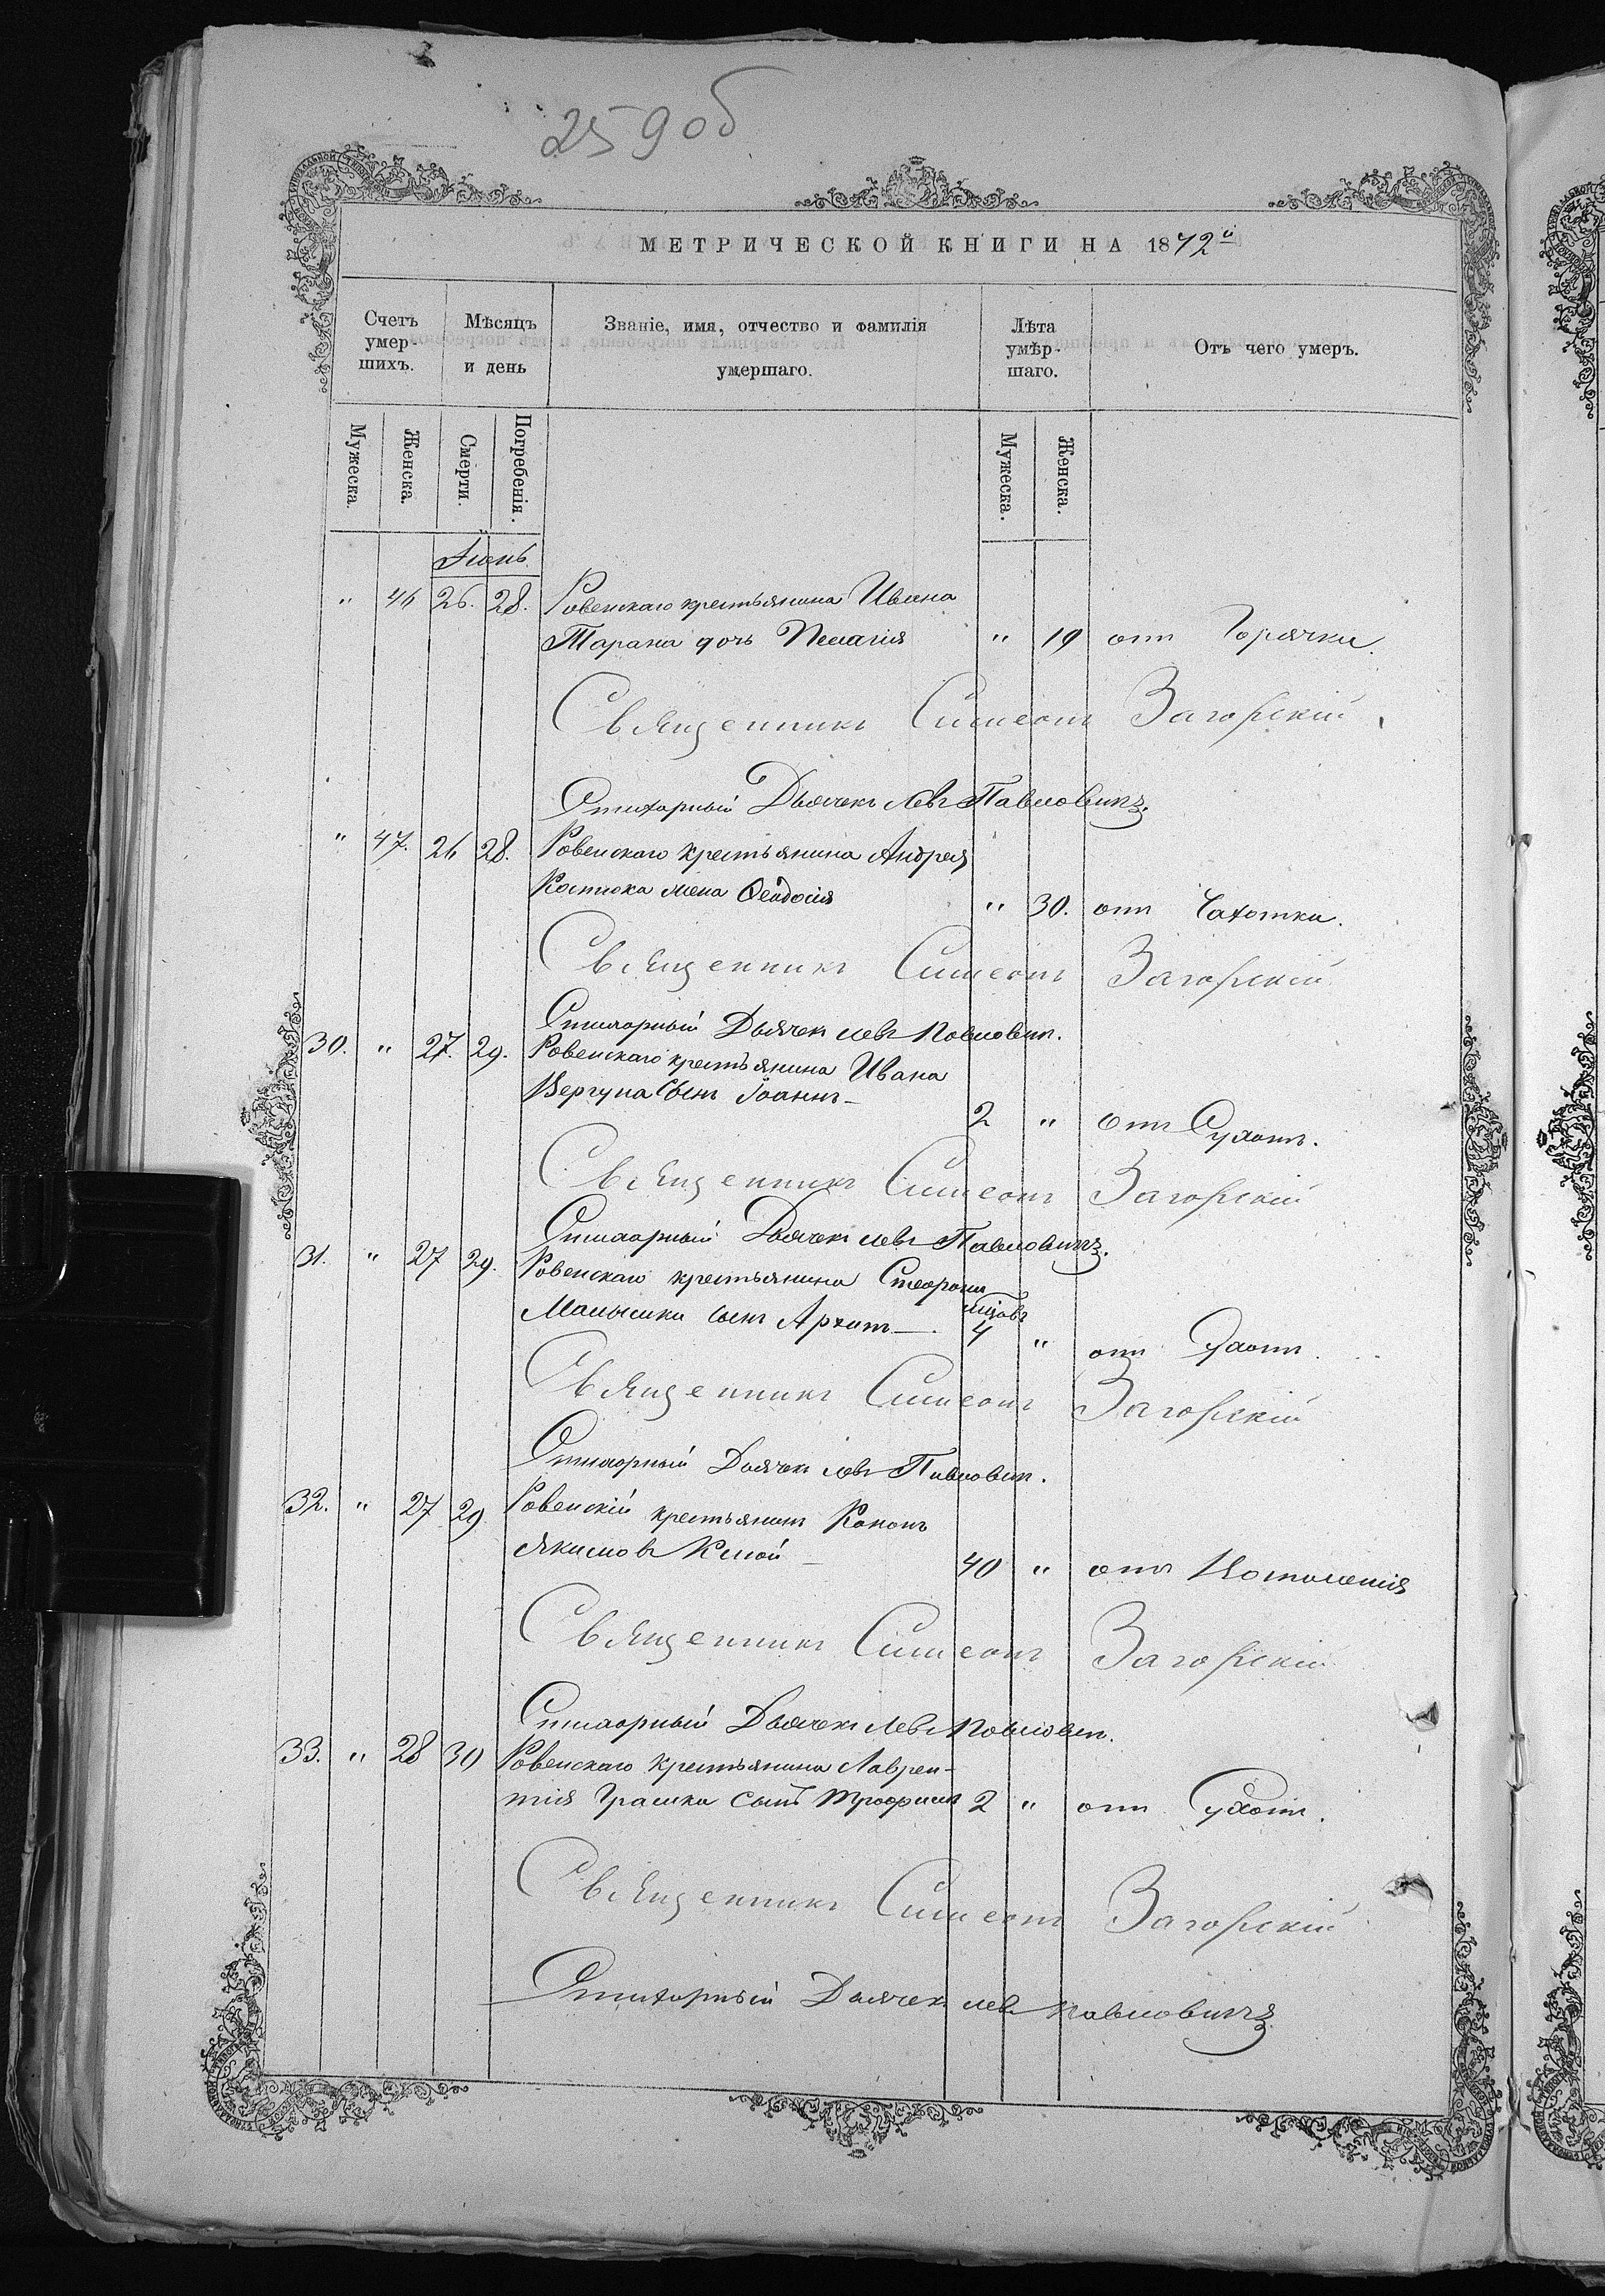 259 об
МЕТРИЧЕСКОЙ КНИГИ НА 1872й
Счетъ умер- шихъ.
Мѣсяцъ и день
Званіе, имя, отчество и фамилія умершаго.
Лѣта умѣр- шаго.
Отъ чего умеръ.
Мужеска.
Женска.
Смерти.
Погребенія.
Мужеска.
Женска.
Іюнь
" 46 26. 28. Ровенскаго крестьянина Ивана
Тарана дочь Пелагія " 19 отъ Горячки.
Священникъ Симеонъ Загорскій
Стихарный Дьячекъ Левъ Павловичъ.
" 47. 26 28. Ровенскаго крестьянина Андрея
Костюка жена Ѳеодосія " 30. отъ Чахотки.
Священникъ Симеонъ Загорскій
Стихарный Дьячекъ Левъ Павлович.
30. " 27. 29. Ровенскаго крестьянина Ивана
Вергуна Сынъ Іоаннъ - 2 " отъ Сухотъ.
Священникъ Симеонъ Загорскій
Стихарный Дьячекъ Левъ Павловичъ.
31. " 27 29. Ровенскаго крестьянина Стефана
Малышки сынъ Архипъ - мцовъ 4 " отъ Сухотъ.
Священникъ Симеонъ Загорскій
Стихарный Дьячекъ Левъ Павлович.
32. " 27 29 Ровенскій крестьянинъ Кононъ
Якимовъ - 40 " отъ
Священникъ Симеонъ Загорскій
Стихарный Дьячекъ Левъ Павлович.
33. " 28 30 Ровенскаго крестьянина Лаврен-
тія Грашка сынъ Трофимъ 2 " отъ Сухотъ.
Священникъ Симеонъ Загорскій
Стихарный Дьячекъ Левъ Павловичъ.